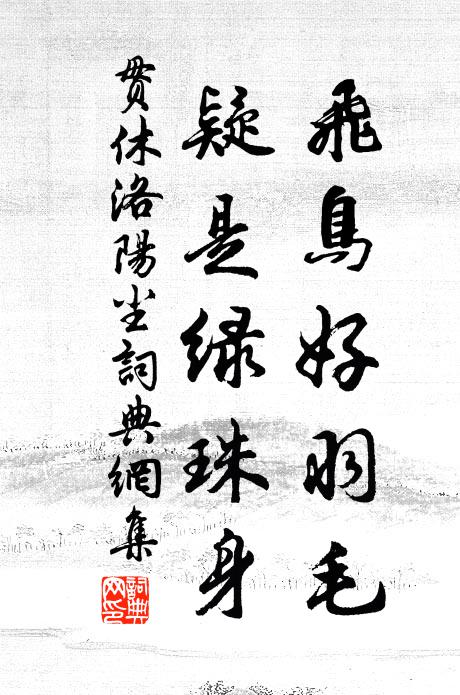 飛鳥好羽毛
疑是緑珠身
貫休洛陽尘詞典網集
詞典网印